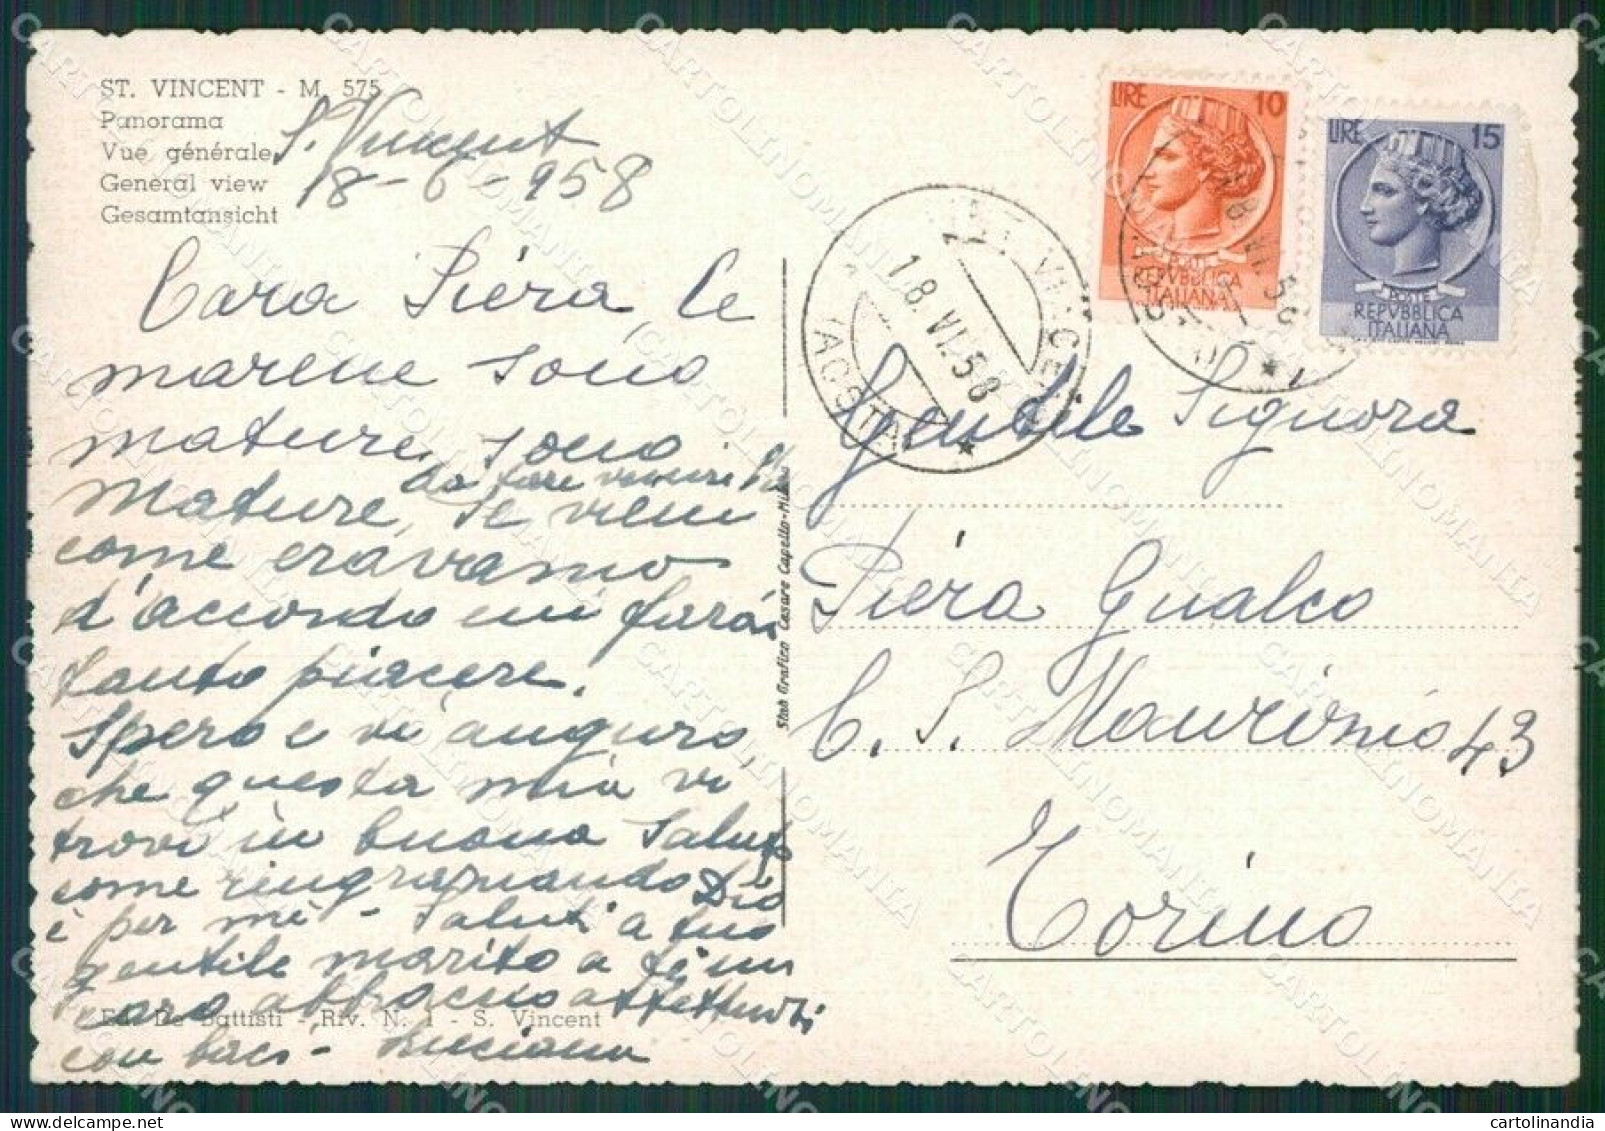 ST. VINCENT - M. 575
Panorama
Vue générale
General view
Gesamtansicht
S. Vincent
18-6-958
Cara Piera, le
marene sono
mature sono
mature, se vieni
da fare venire
come eravamo
d'accordo mi farai
tanto piacere.
Spero e vi auguro,
che questa mia vi
trovi in buona salute
come ringraziando Dio
è per me - Saluti a tuo
gentile marito a te un
caro abbraccio
con baci - Luciana
Ed. De Battisti - Riv. N. 1 - S. Vincent
Stab Grafico Cesare Capello-Milano
ST. VINCENT
18.VI.58
(AOSTA)
LIRE 10
POSTE
REPVBBLICA
ITALIANA
LIRE 15
POSTE
REPVBBLICA
ITALIANA
18.VI.58
Gentile Signora
Piera Gualco
C. S. Maurizio 43
Torino
CARTOLINOMANIA
cartolinandia